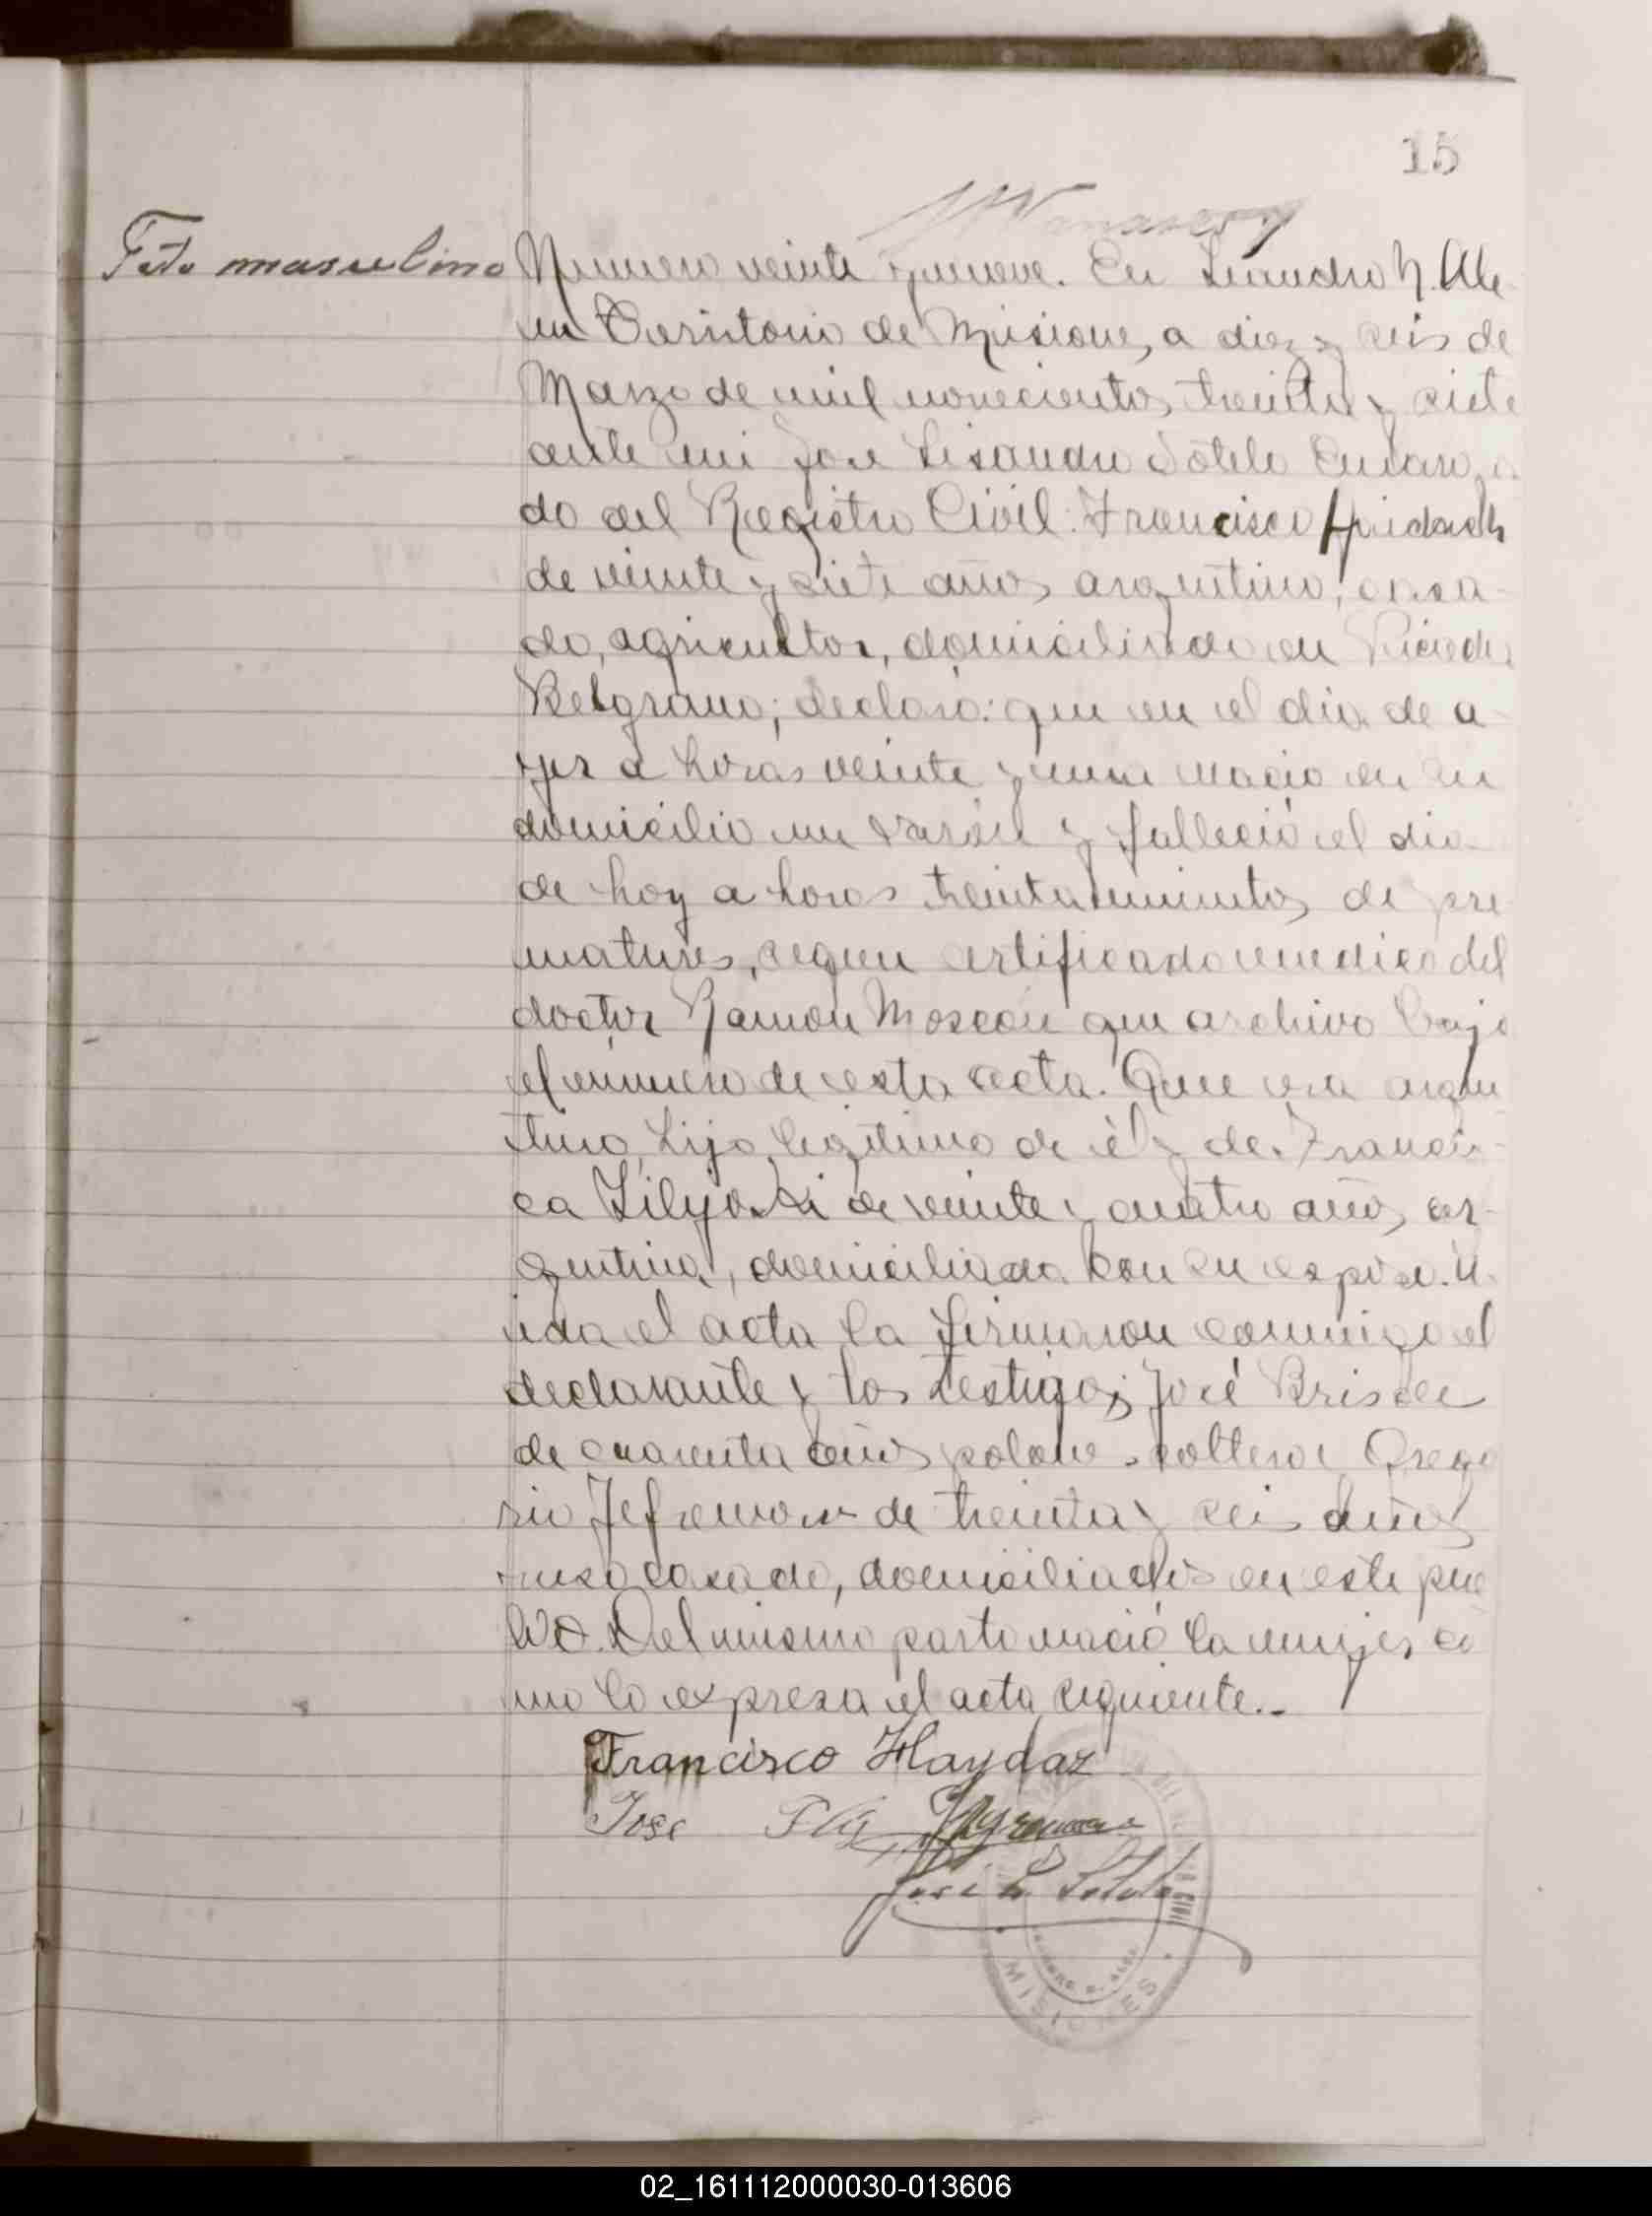 15
Feto masculino
Numero veinte y nueve. En Leandro N. Ale
m Territorio de Misiones, a diez y seis de
Marzo de mil novecientos treinta y siete
ante mi Jose Lisandro Sotelo Encarga
do del Registro Civil: Francisco
de veinte y siete años, argentino, casa-
do, agricultor, domiciliado en Picada
Belgrano; declaró: que en el dia de a-
yer a horas veinte y una nació en su
domicilio un varón y falleció el dia
de hoy a horas treinta minutos, de pre
maturez, segun certificado medico del
doctor Ramon Moscon que archivo bajo
el número de esta acta. Que era argen
tino, hijo legitimo de él y de Francis-
ca de veinte y cuatro años, ar-
gentina, domiciliada con su esposo. L
eida el acta la firmaron conmigo el
declarante y los testigos José
de cuarenta años polono soltero y Grego
rio de treinta y seis años
ruso casado, domiciliados en este pue
blo. Del mismo parto nació la mujer co
mo lo expresa el acta siguiente.-
Francisco Haydaz
Jose
Jose L. Sotelo
MISIONES
02_161112000030-013606